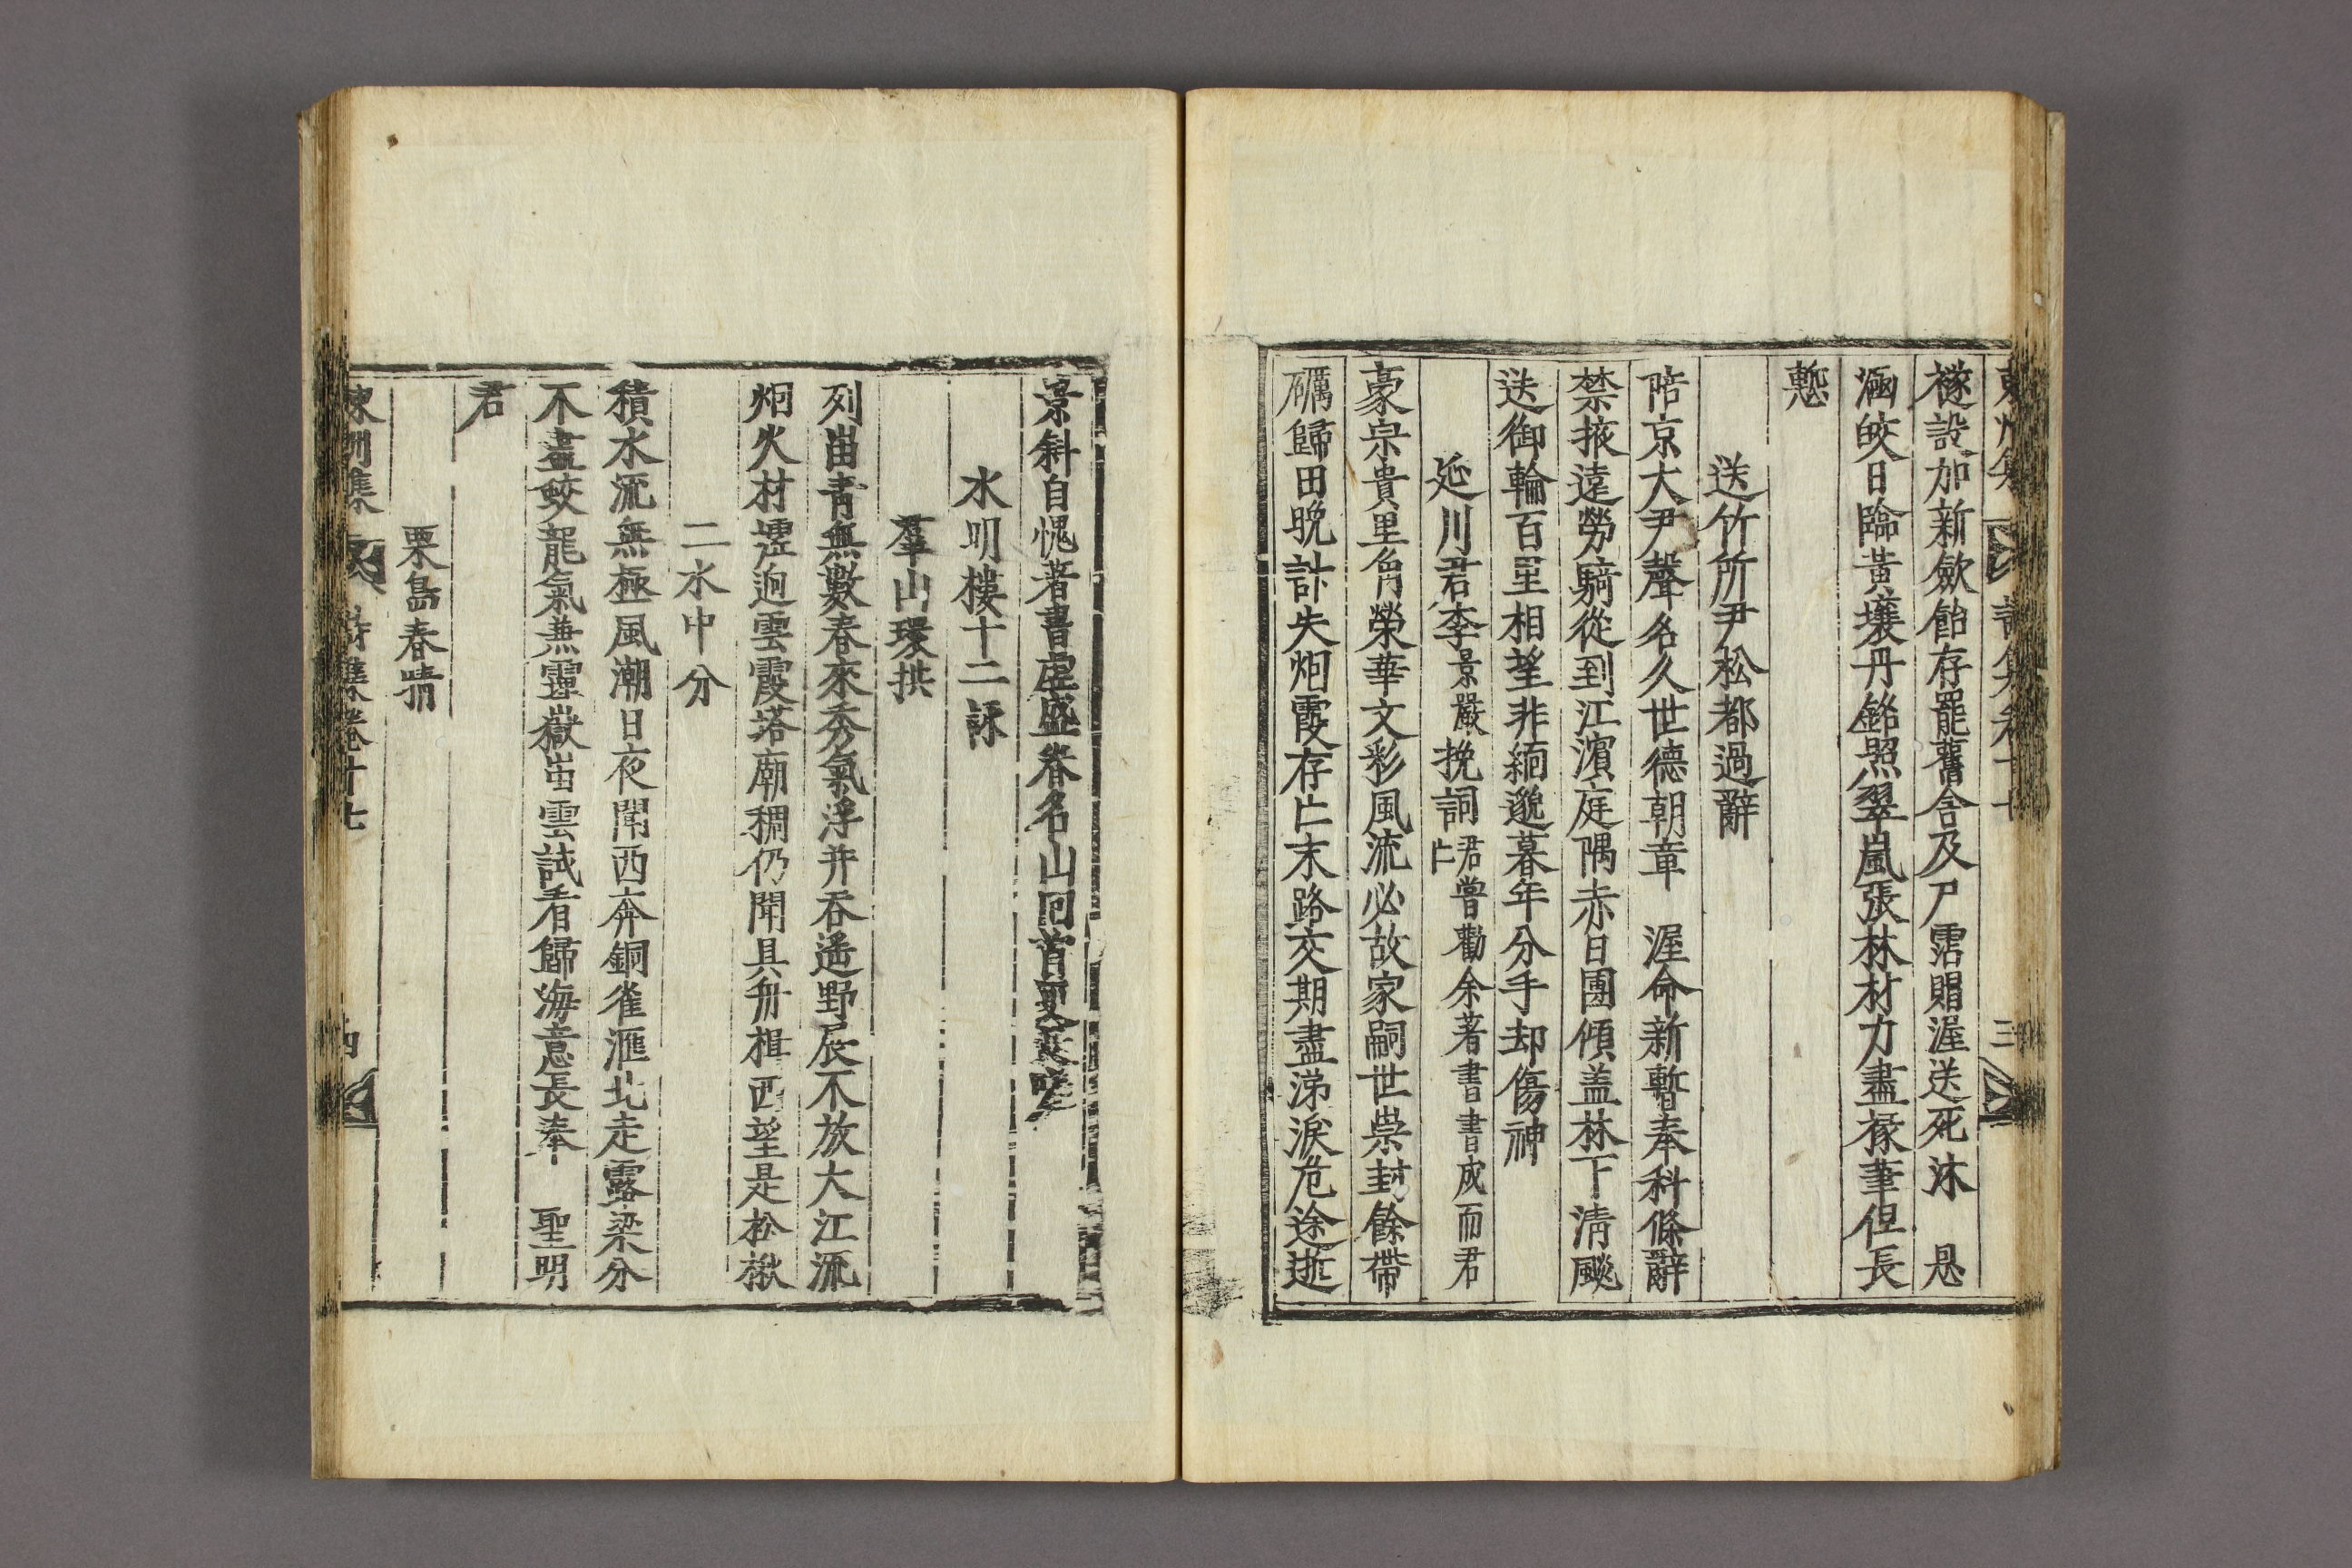 東州集 詩集卷十七 三
襚設加新斂飴存罷舊含及尸霑賵渥送死沐 恩
涵皎日臨黃壤丹銘照翠嵐張林材力盡祿筆但長
慙
送竹所尹松都過辭
陪京大尹聲名久世德朝章 渥命新暫奉科條辭
禁掖遠勞騎從到江濱庭隅赤日團傾盖林下淸飈
送御輪百里相望非緬邈暮年分手却傷神
延川君李景嚴挽詞君嘗勸余著書書成而君亡
豪宗貴里角榮華文彩風流必故家嗣世崇封餘帶
礪歸田晩計失烟霞存亡末路交期盡涕淚危途逝
景斜自愧著書虛盛眷名山回首更長嗟
水明樓十二詠
羣山環拱
列岫靑無數春來秀氣浮幷呑遙野展不放大江流
烟火材墟逈雲霞塔廟稠仍聞具舟楫西望是松楸
二水中分
積水流無極風潮日夜聞西奔銅雀滙北走露梁分
不盡蛟龍氣兼靈嶽出雲試看歸海意長奉 聖明
君
栗島春晴
東州集 詩集卷十七 四